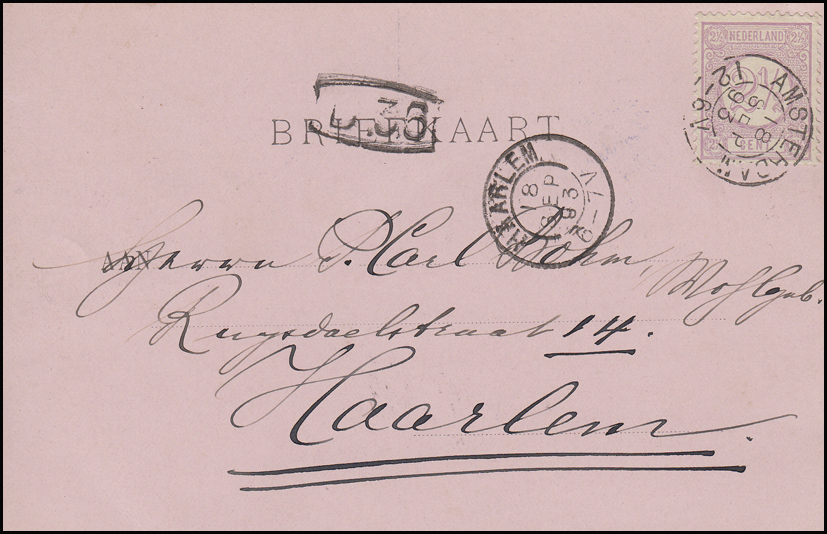 2½ NEDERLAND 2½
CENT
AMSTERDAM
BRIEFKAART
HAARLEM
18 SEP 93
AAN
Herrn P. Carl Böhm, Wohlgeb.
Ruysdaelstraat 14.
Haarlem.